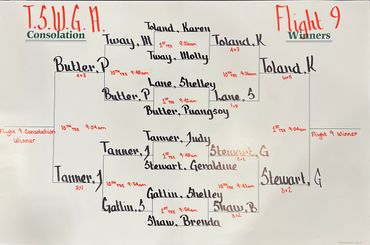 T.S.W.G.A.
Flight 9
Consolation
Winners
Toland, Karen
Tway, M
1st TEE 9:36am
Toland, K
4+3
Tway, Molly
Butler, P
4+3
10th TEE 9:48am
10th TEE 9:36am
Toland, K
6+5
Lane, Shelley
Butler, P
1st TEE 9:42am
Lane, S
1up
Butler, Puangsoy
Flight 9 Consolation
Winner
10th TEE 9:04am
1st TEE 9:04am
Flight 9 Winner
Tanner, Judy
Tanner, J
1st TEE 9:48am
Stewart, G
3+2
Stewart, Geraldine
Tanner, J
2+1
10th TEE 9:54am
10th TEE 9:42am
Stewart, G
3+2
Gattin, Shelley
Gattin, S
1st TEE 9:54am
Shaw, B
3+2
Shaw, Brenda